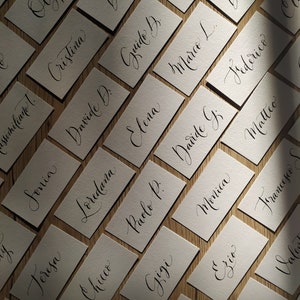 Cristina
Guido D.
Marco L.
Federico
Davide D.
Elena
Davide G.
Matteo
Sonia
Loredana
Paolo P.
Monica
Francesco
Teresa
Chicco
Gigi
Ezio